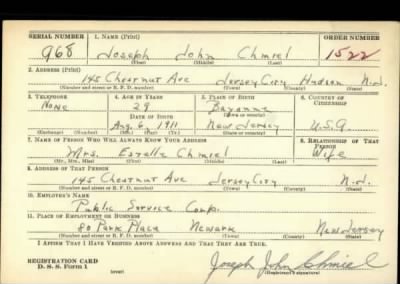 SERIAL NUMBER 1. NAME (Print) ORDER NUMBER
968 Joseph John Chmiel 1522
(First) (Middle) (Last)
2. ADDRESS (Print)
145 Chestnut Ave Jersey City Hudson N.J.
(Number and street or R. F. D. number) (Town) (County) (State)
3. TELEPHONE 4. AGE IN YEARS 5. PLACE OF BIRTH 6. COUNTRY OF CITIZENSHIP
None 29 Bayonne
(Town or county)
DATE OF BIRTH
Aug. 6 1911 New Jersey U.S.A.
(Exchange) (Number) (Mo.) (Day) (Yr.) (State or country)
7. NAME OF PERSON WHO WILL ALWAYS KNOW YOUR ADDRESS 8. RELATIONSHIP OF THAT PERSON
Mrs. Estelle Chmiel Wife
(Mr., Mrs., Miss) (First) (Middle) (Last)
9. ADDRESS OF THAT PERSON
145 Chestnut Ave Jersey City N.J.
(Number and street or R. F. D. number) (Town) (County) (State)
10. EMPLOYER'S NAME
Public Service Corp.
11. PLACE OF EMPLOYMENT OR BUSINESS
80 Park Place Newark New Jersey
(Number and street or R. F. D. number) (Town) (County) (State)
I AFFIRM THAT I HAVE VERIFIED ABOVE ANSWERS AND THAT THEY ARE TRUE.
REGISTRATION CARD
D. S. S. Form 1 (over) Joseph John Chmiel
(Registrant's signature)